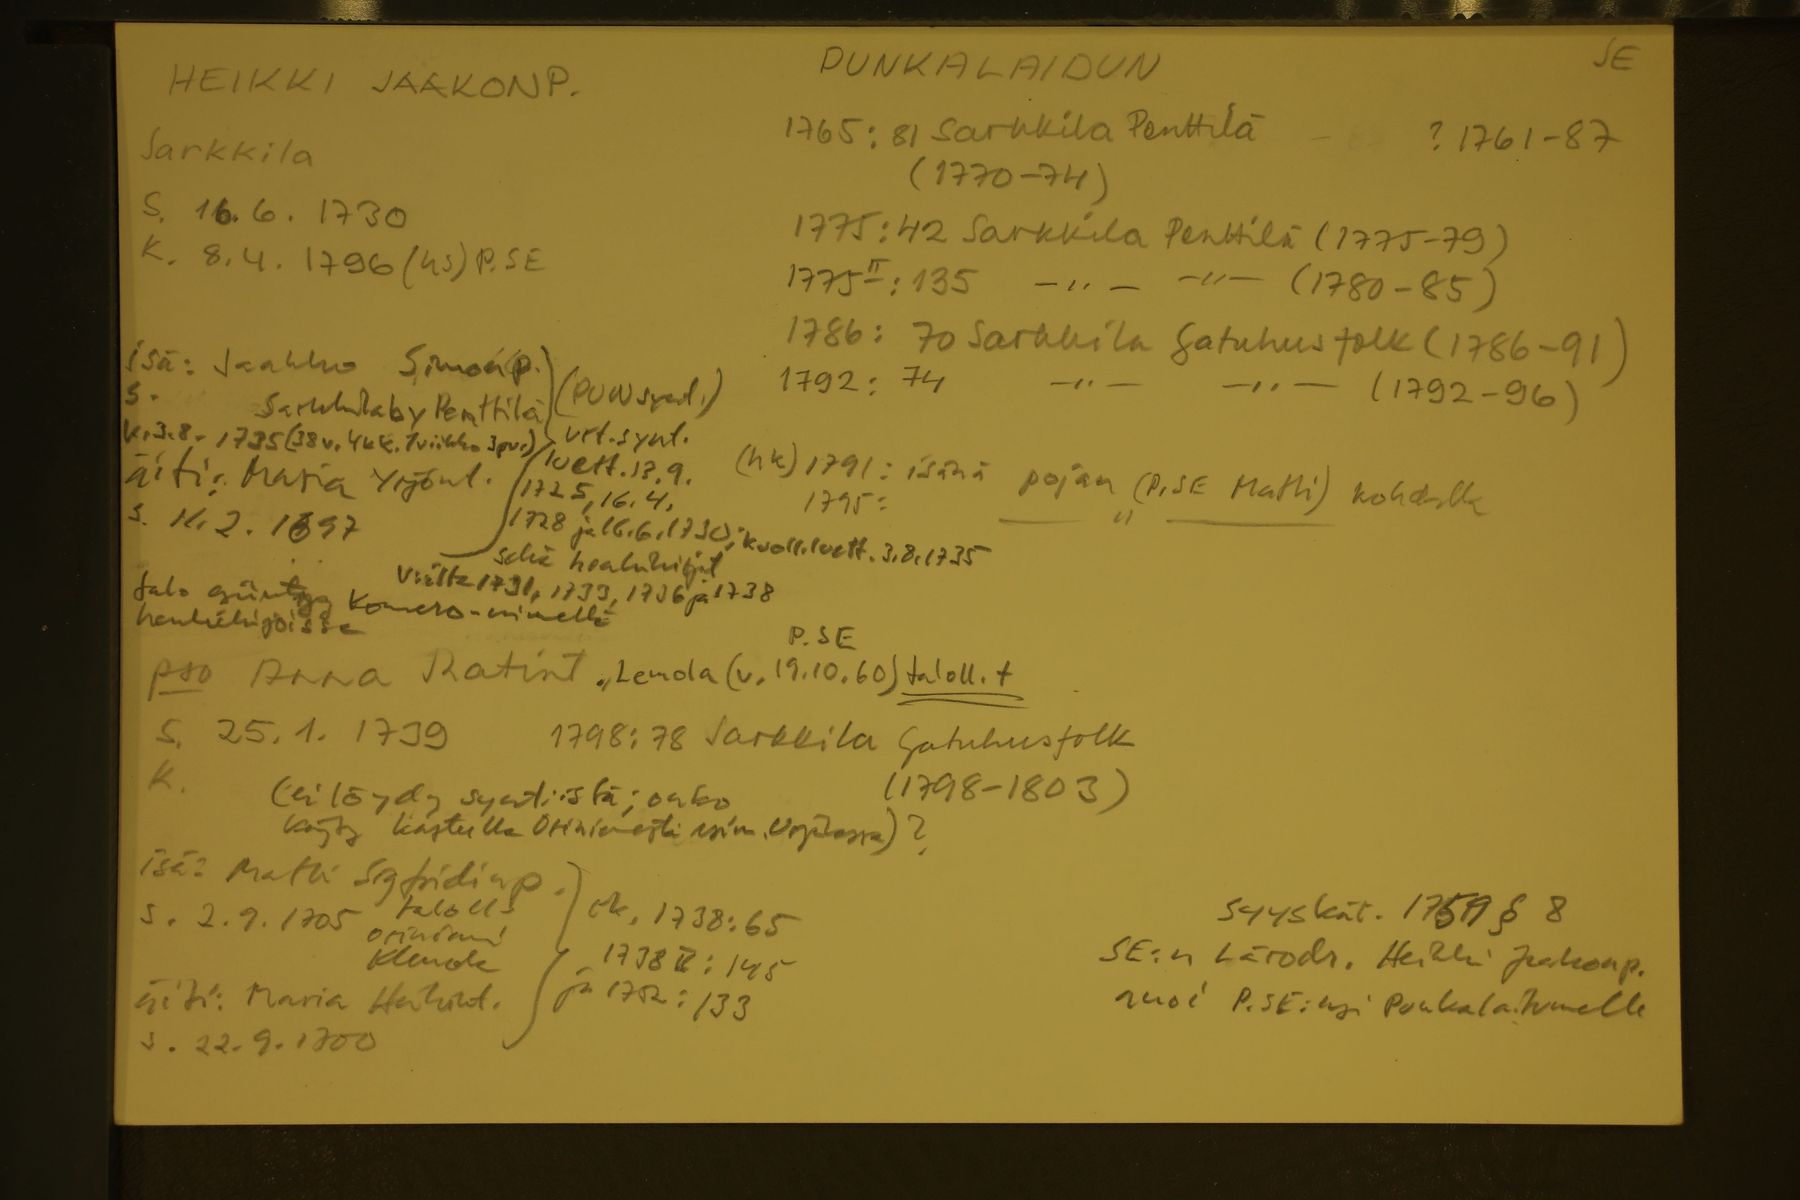 HEIKKI JAAKONP.
PUNKALAIDUN
SE
Sarkkila
S. 16.6. 1730
K. 8.4. 1796 (hs) P.SE
1765: 81 Sarkkila Penttilä ? 1761-87
(1770-74)
1775: 42 Sarkkila Penttilä (1775-79)
1775II: 135 -"- -"- (1780-85)
1786: 70 Sarkkila Gatuhusfolk (1786-91)
1792: 74 -"- -"- (1792-96)
isä: Jaakko Simonp.
S. Sarkkilaby Penttilä
k. 3.8. 1735 (38 v. 4 kk. 1 viikko 3 pv.)
äiti: Maria Yrjönt.
S. 11.2. 1697
(PUN synt.)
vrt. synt.
luett. 13.9.
1725, 16.4.
1728 ja 16.6.1730; kuoll.luett. 3.8.1735
sekä henkikirjat
viilta 1731, 1733, 1736 ja 1738
talo esiintyy Komero-nimellä
henkikirjoissa
(hk) 1791: isänä pojan (P.SE Matti) kohdalla
1795: "
pso Anna Matint. Lenda (v. 19.10.60) P.SE taloll. t
S. 25.1. 1739
K.
1798: 78 Sarkkila Gatuhusfolk
(1798-1803)
(ei löydy syntiistä; onko
käyty kasteella Orinimestä esim. Urjalassa)?
isä: Matti Sigfridinp.
s. 2.9. 1705 talolls
orinimi
Klenda
äiti: Maria Heikint.
s. 22.9.1700
rk. 1738: 65
1738 II: 145
ja 1752: 133
Syyskär. 1759 § 8
SE:n Lärodr. Heikki Jaakonp.
nuoi P.SE:ksi Punkalaitumelle